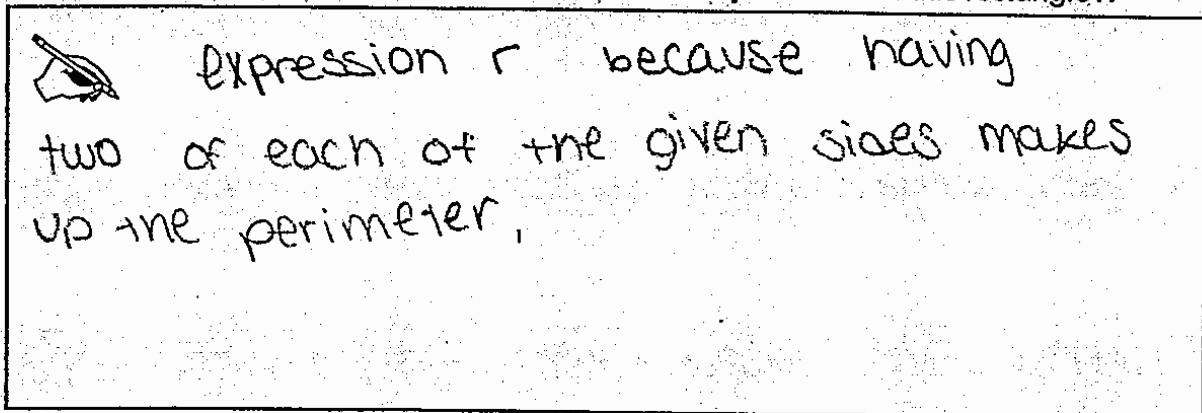 expression r because having
two of each of the given sides makes
up the perimeter,